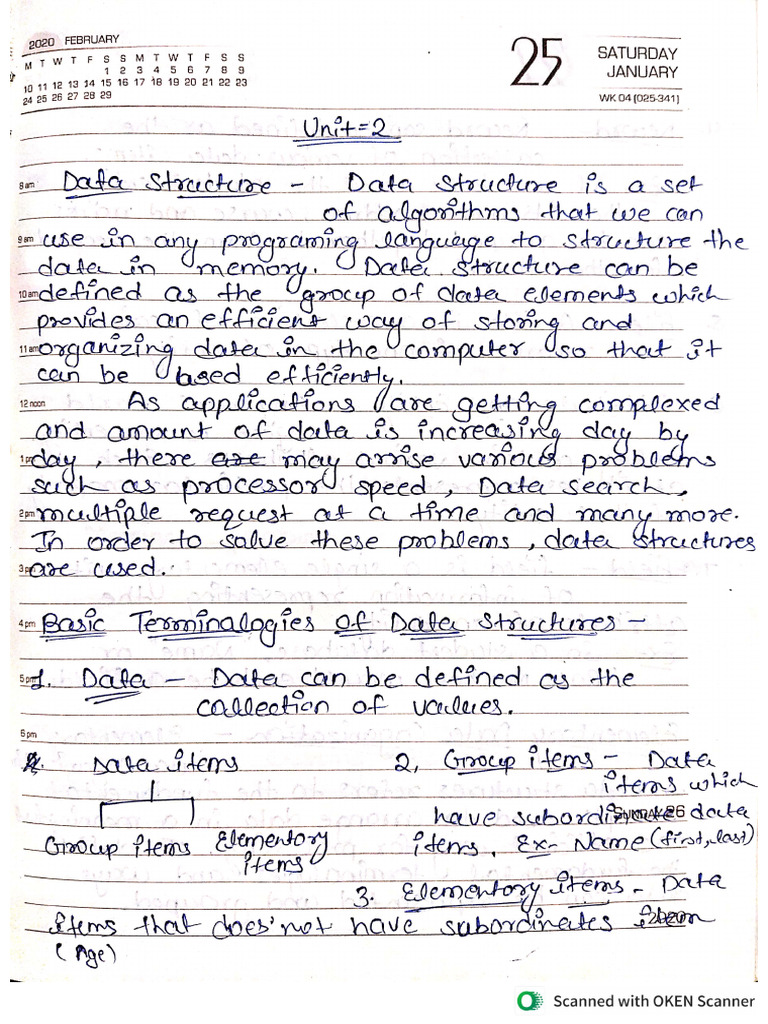 2020 FEBRUARY
M T W T F S S M T W T F S S
1 2 3 4 5 6 7 8 9
10 11 12 13 14 15 16 17 18 19 20 21 22 23
24 25 26 27 28 29
25
SATURDAY
JANUARY
WK 04 (025-341)
Unit=2
8am Data Structure - Data Structure is a set
of algorithms that we can
9am use in any programing language to structure the
data in memory. Data structure can be
10am defined as the group of data elements which
provides an efficient way of storing and
11am organizing data in the computer so that it
can be used efficiently.
12 noon As applications are getting complexed
and amount of data is increasing day by
1pm day, there are may arrise various problems
such as processor speed, Data search,
2pm multiple request at a time and many more.
In order to solve these problems, data structures
3pm are used.
4pm Basic Terminalogies of Data structures -
5pm 1. Data - Data can be defined as the
collection of values.
6pm
2. Data items
Group items Elementary
items
2, Group items - Data
items which
have subordinate data
items. Ex- Name (first, last)
3. Elementory items - Data
items that does'not have subordinates item
(Age)
Scanned with OKEN Scanner